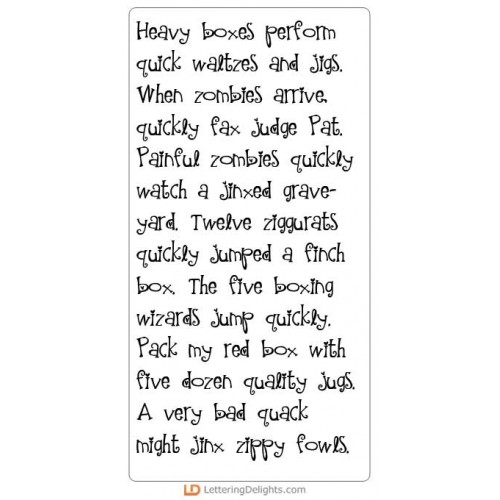 Heavy boxes perform
quick waltzes and jigs.
When zombies arrive,
quickly fax judge Pat.
Painful zombies quickly
watch a jinxed grave-
yard. Twelve ziggurats
quickly jumped a finch
box. The five boxing
wizards jump quickly.
Pack my red box with
five dozen quality jugs.
A very bad quack
might jinx zippy fowls.
LD LetteringDelights.com